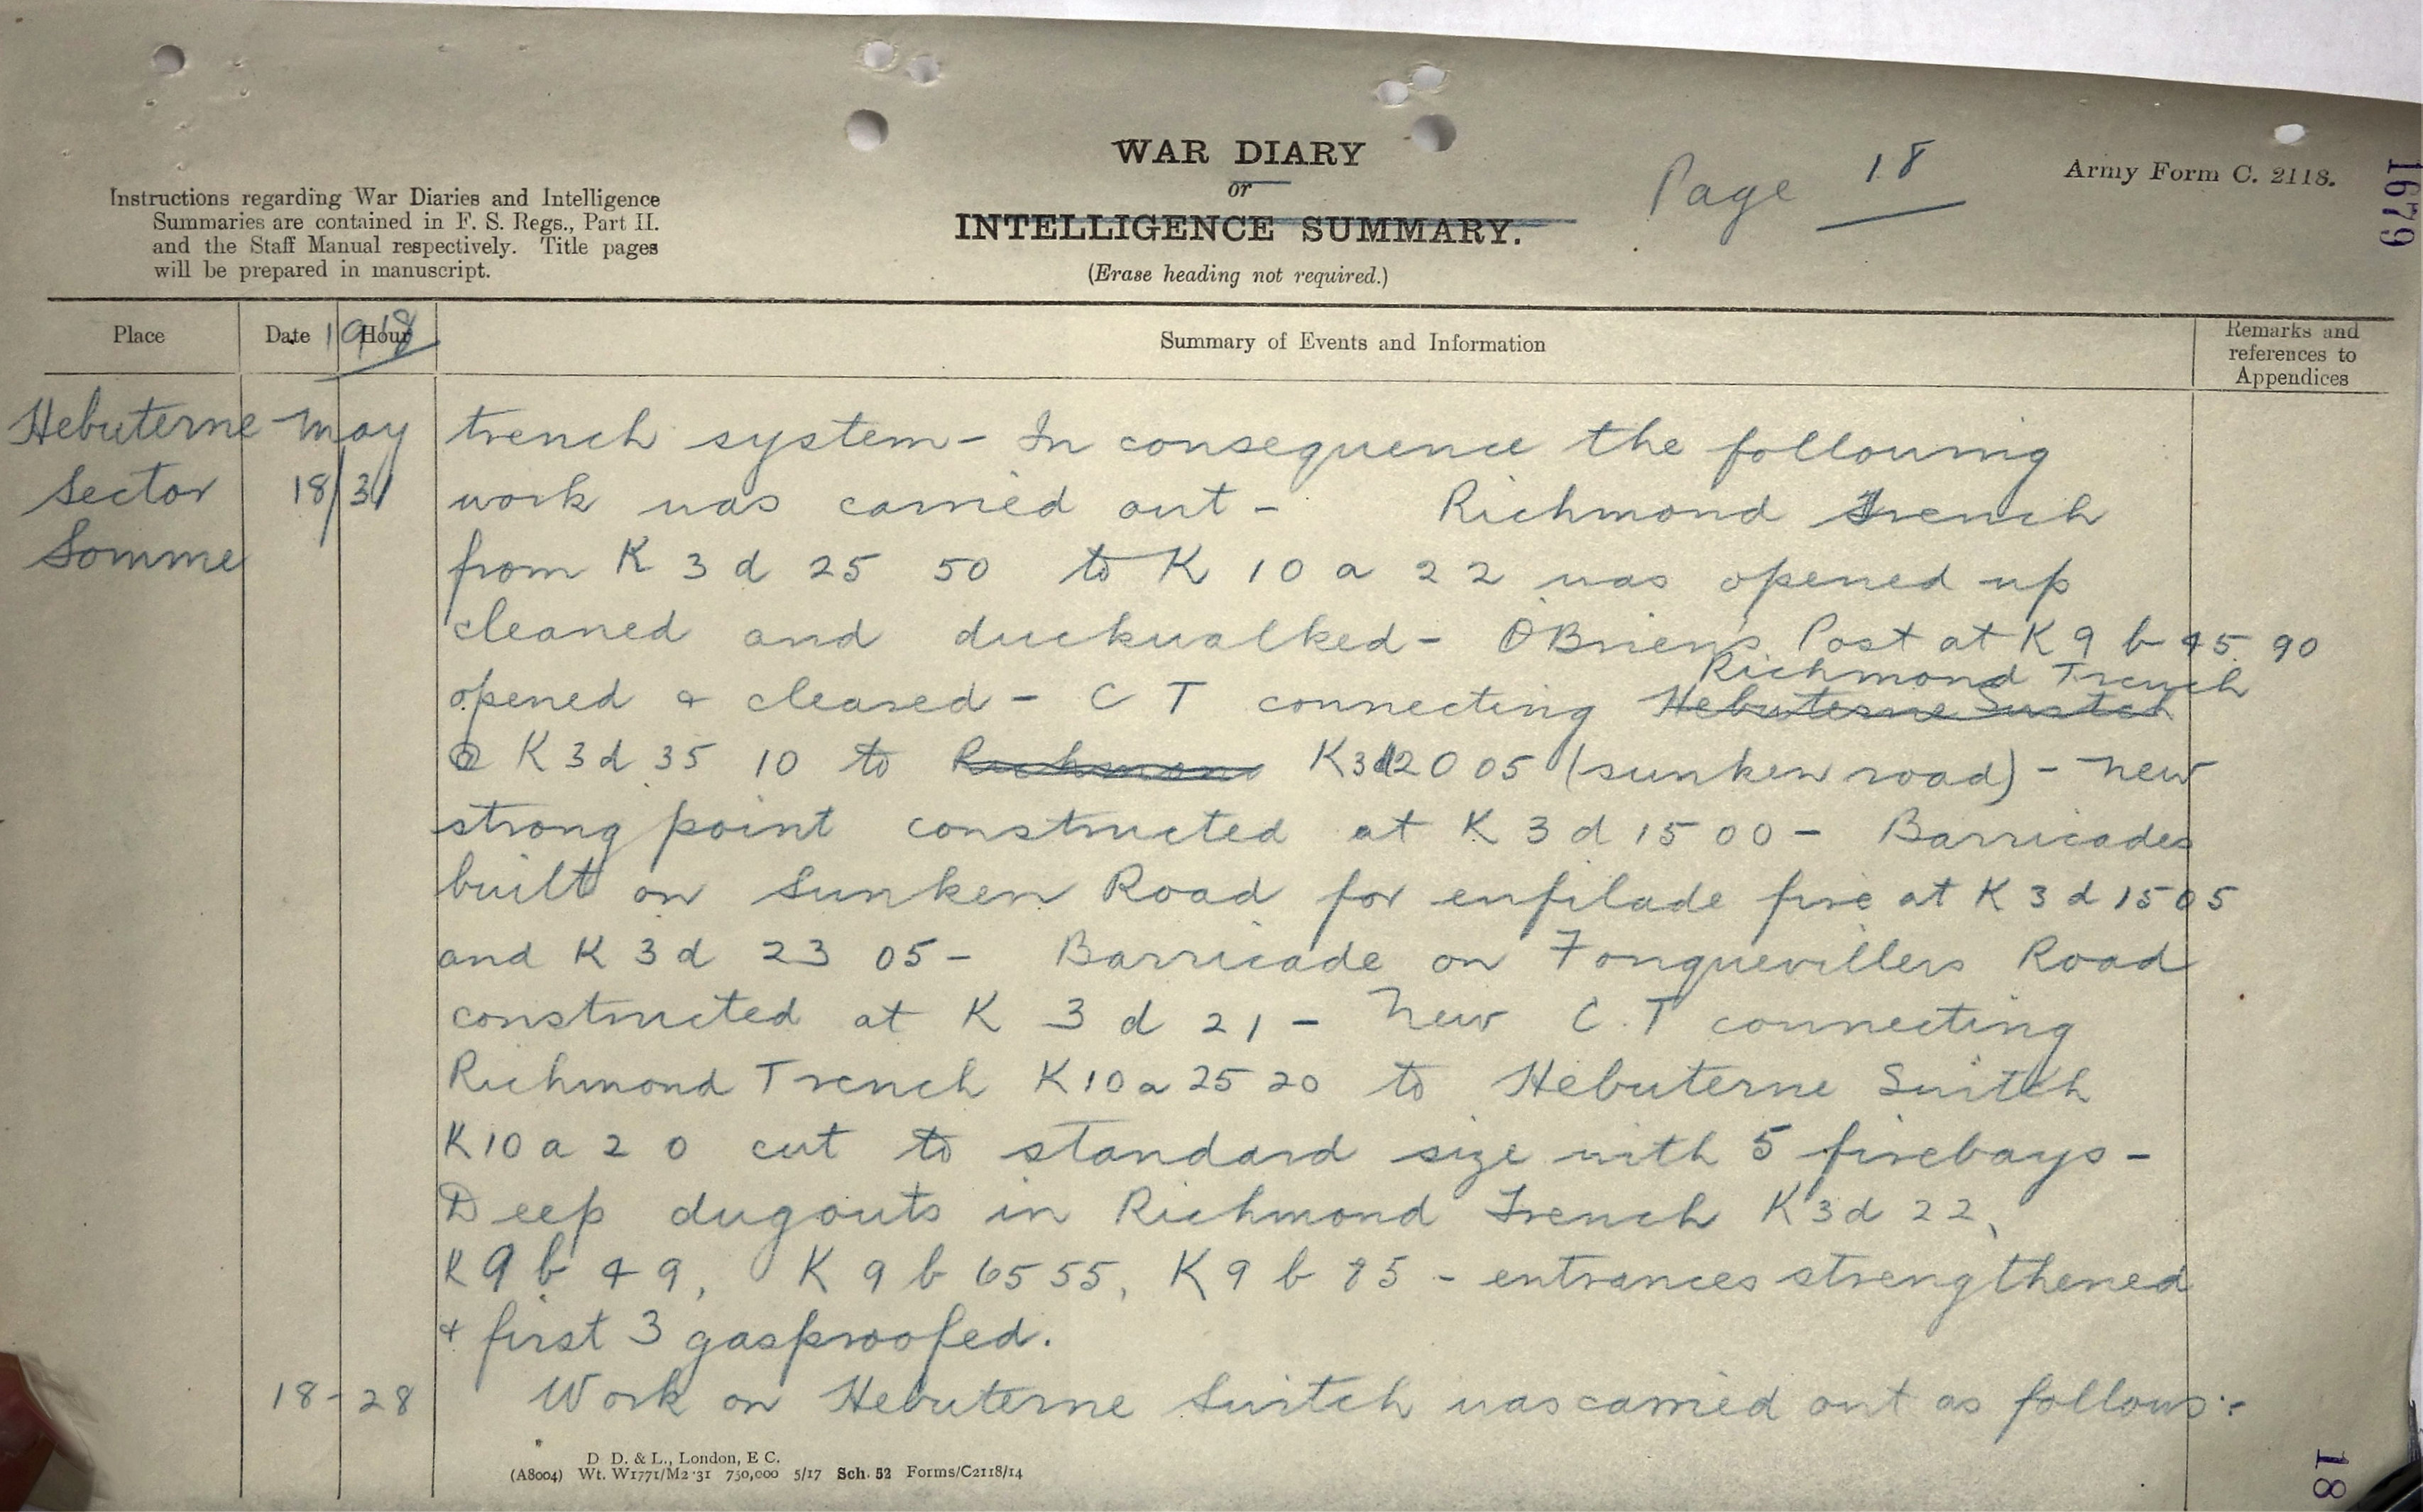 WAR DIARY
or
INTELLIGENCE SUMMARY.
(Erase heading not required.)
Page 18
Army Form C. 2118.
1679
Instructions regarding War Diaries and Intelligence
Summaries are contained in F. S. Regs., Part II.
and the Staff Manual respectively. Title pages
will be prepared in manuscript.
Place
Date
Hour
1918
Summary of Events and Information
Remarks and
references to
Appendices
Hebuterne
Sector
Somme
May
18/31
trench system - In consequence the following
work was carried out - Richmond Trench
from K 3 d 25 50 to K 10 a 22 was opened up
cleaned and duckwalked - O'Brien's Post at K 9 b 45 90
Richmond Trench
opened & cleared - C T connecting Hebuterne Switch
@ K 3 d 35 10 to Richmond K3d20 05 (sunken road) - New
strong point constructed at K 3 d 15 00 - Barricades
built on Sunken Road for enfilade fire at K 3 d 15 05
and K 3 d 23 05 - Barricade on Fonquevillers Road
constructed at K 3 d 21 - New C.T connecting
Richmond Trench K10 a 25 20 to Hebuterne Switch
K10 a 2 0 cut to standard size with 5 firebays -
Deep dugouts in Richmond Trench K 3 d 22,
K 9 b 49, K 9 b 65 55, K 9 b 85 - entrances strengthened
& first 3 gasproofed.
18-28 Work on Hebuterne Switch was carried out as follows:-
D. D. & L., London, E C.
(A8004) Wt. W1771/M2 31 750,000 5/17 Sch. 52 Forms/C2118/14
18